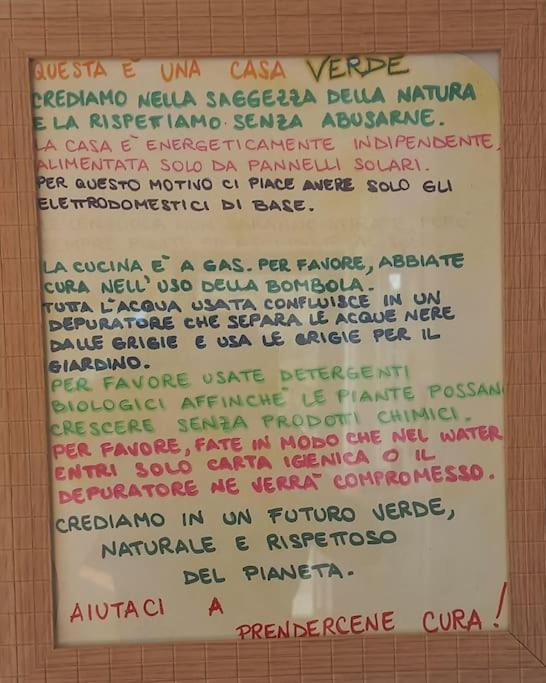 QUESTA È UNA CASA VERDE
CREDIAMO NELLA SAGGEZZA DELLA NATURA
E LA RISPETIAMO SENZA ABUSARNE.
LA CASA È ENERGETICAMENTE INDIPENDENTE,
ALIMENTATA SOLO DA PANNELLI SOLARI.
PER QUESTO MOTIVO CI PIACE AVERE SOLO GLI
ELETTRODOMESTICI DI BASE.
LA CUCINA È A GAS. PER FAVORE, ABBIATE
CURA NELL'USO DELLA BOMBOLA.
TUTTA L'ACQUA USATA CONFLUISCE IN UN
DEPURATORE CHE SEPARA LE ACQUE NERE
DALLE GRIGIE E USA LE GRIGIE PER IL
GIARDINO.
PER FAVORE USATE DETERGENTI
BIOLOGICI AFFINCHÈ LE PIANTE POSSAN
CRESCERE SENZA PRODOTTI CHIMICI.
PER FAVORE, FATE IN MODO CHE NEL WATER
ENTRI SOLO CARTA IGIENICA O IL
DEPURATORE NE VERRÀ COMPROMESSO.
CREDIAMO IN UN FUTURO VERDE,
NATURALE E RISPETTOSO
DEL PIANETA.
AIUTACI A
PRENDERCENE CURA!